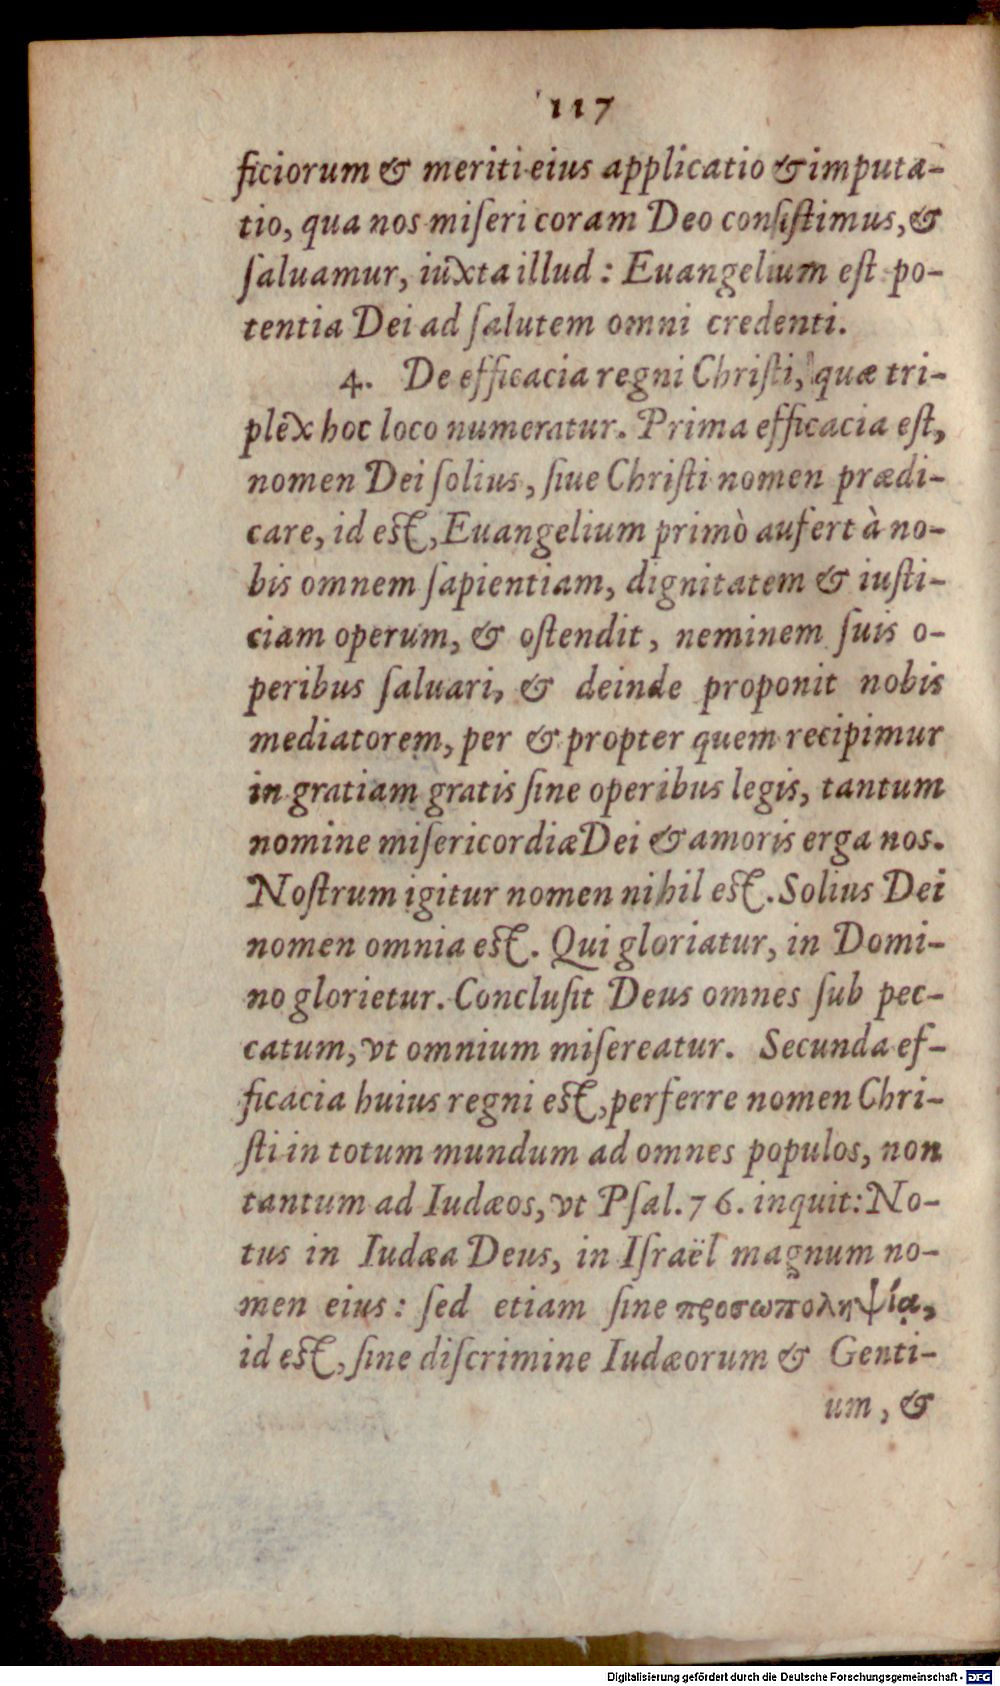 117
ficiorum & meriti eius applicatio & imputa-
tio, qua nos miſeri coram Deo conſiſtimus, &
ſaluamur, iuxta illud: Euangelium eſt po-
tentia Dei ad ſalutem omni credenti.
4. De efficacia regni Chriſti, quæ tri-
plex hoc loco numeratur. Prima efficacia eſt,
nomen Dei ſolius, ſiue Chriſti nomen prædi-
care, id eſt, Euangelium primò aufert à no-
bis omnem ſapientiam, dignitatem & iuſti-
ciam operum, & oſtendit, neminem ſuis o-
peribus ſaluari, & deinde proponit nobis
mediatorem, per & propter quem recipimur
in gratiam gratis ſine operibus legis, tantum
nomine miſericordiæ Dei & amoris erga nos.
Noſtrum igitur nomen nihil eſt. Solius Dei
nomen omnia eſt. Qui gloriatur, in Domi-
no glorietur. Concluſit Deus omnes ſub pec-
catum, vt omnium miſereatur. Secunda ef-
ficacia huius regni eſt, perferre nomen Chri-
ſti in totum mundum ad omnes populos, non
tantum ad Iudæos, vt Pſal. 76. inquit: No-
tus in Iudæa Deus, in Iſraël magnum no-
men eius: ſed etiam ſine προσωποληψίᾳ,
id eſt, ſine diſcrimine Iudæorum & Genti-
um, &
Digitalisierung gefördert durch die Deutsche Forschungsgemeinschaft - DFG